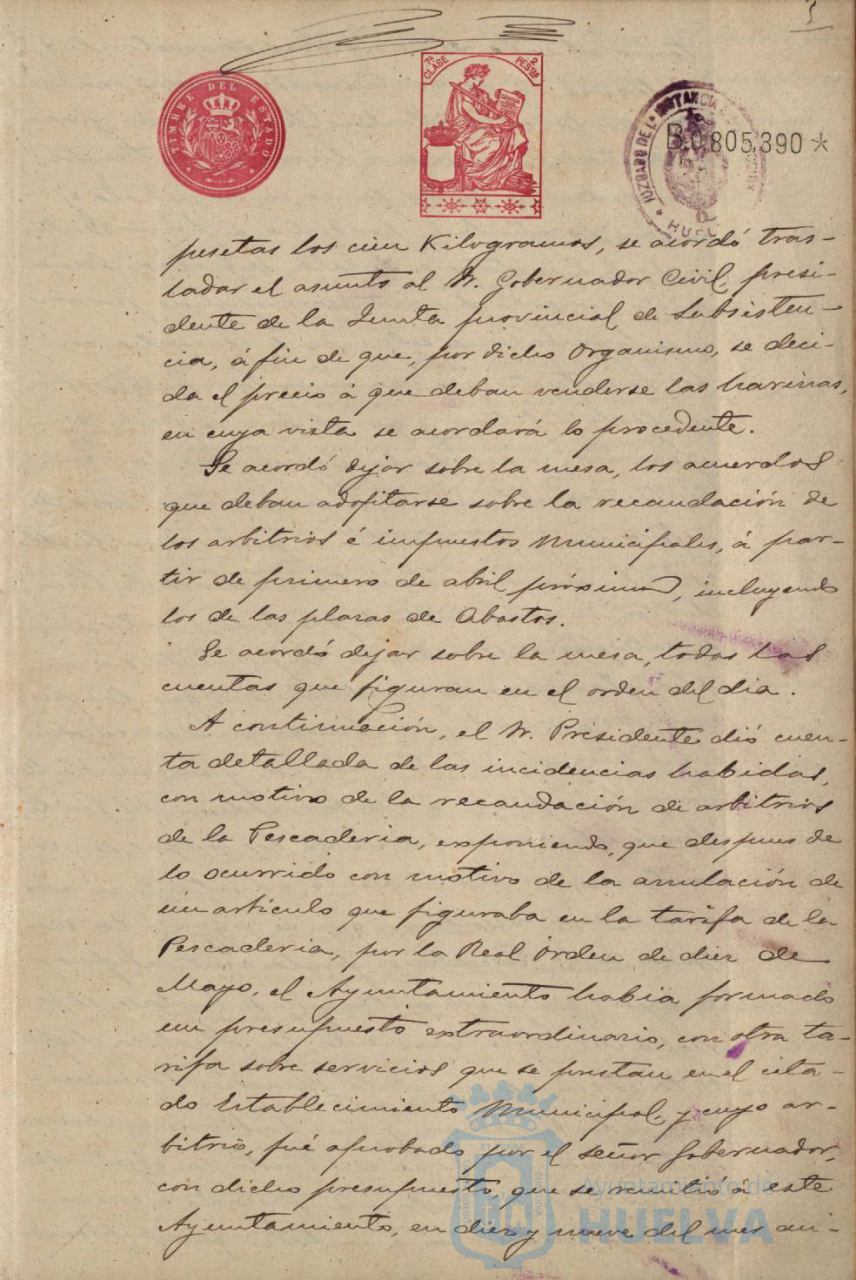 5
TIMBRE DEL ESTADO
7ª CLASE
2 PESTAS
JUZGADO DE 1ª INSTANCIA
HUELVA
B.0.805.390 *
pesetas los cien Kilogramos, se acordó tras-
ladar el asunto al Sr. Gobernador Civil, presi-
dente de la Junta provincial de Subsisten-
cia, á fin de que, por dicho Organismo, se deci-
da el precio á que deban venderse las harinas,
en cuya vista se acordará lo procedente.
Se acordó dejar sobre la mesa, los acuerdos
que deban adoptarse sobre la recaudación de
los arbitrios é impuestos Municipales, á par-
tir de primero de abril próximo, incluyendo
los de las plazas de Abastos.
Se acordó dejar sobre la mesa, todas las
cuentas que figuran en el orden del dia.
A continuación, el Sr. Presidente dió cuen-
ta detallada de las incidencias habidas,
con motivo de la recaudación de arbitrios
de la Pescaderia, exponiendo, que despues de
lo ocurrido con motivo de la anulación de
un artículo que figuraba en la tarifa de la
Pescaderia, por la Real Órden de diez de
Mayo, el Ayuntamiento habia formado
un presupuesto extraordinario, con otra ta-
rifa sobre servicios que se prestan en el cita-
do Establecimiento Municipal, y cuyo ar-
bitrio, fué aprobado por el señor Gobernador,
con dicho presupuesto, que se remitió á este
Ayuntamiento, en diez y nueve del mes an-
Ayuntamiento de
HUELVA